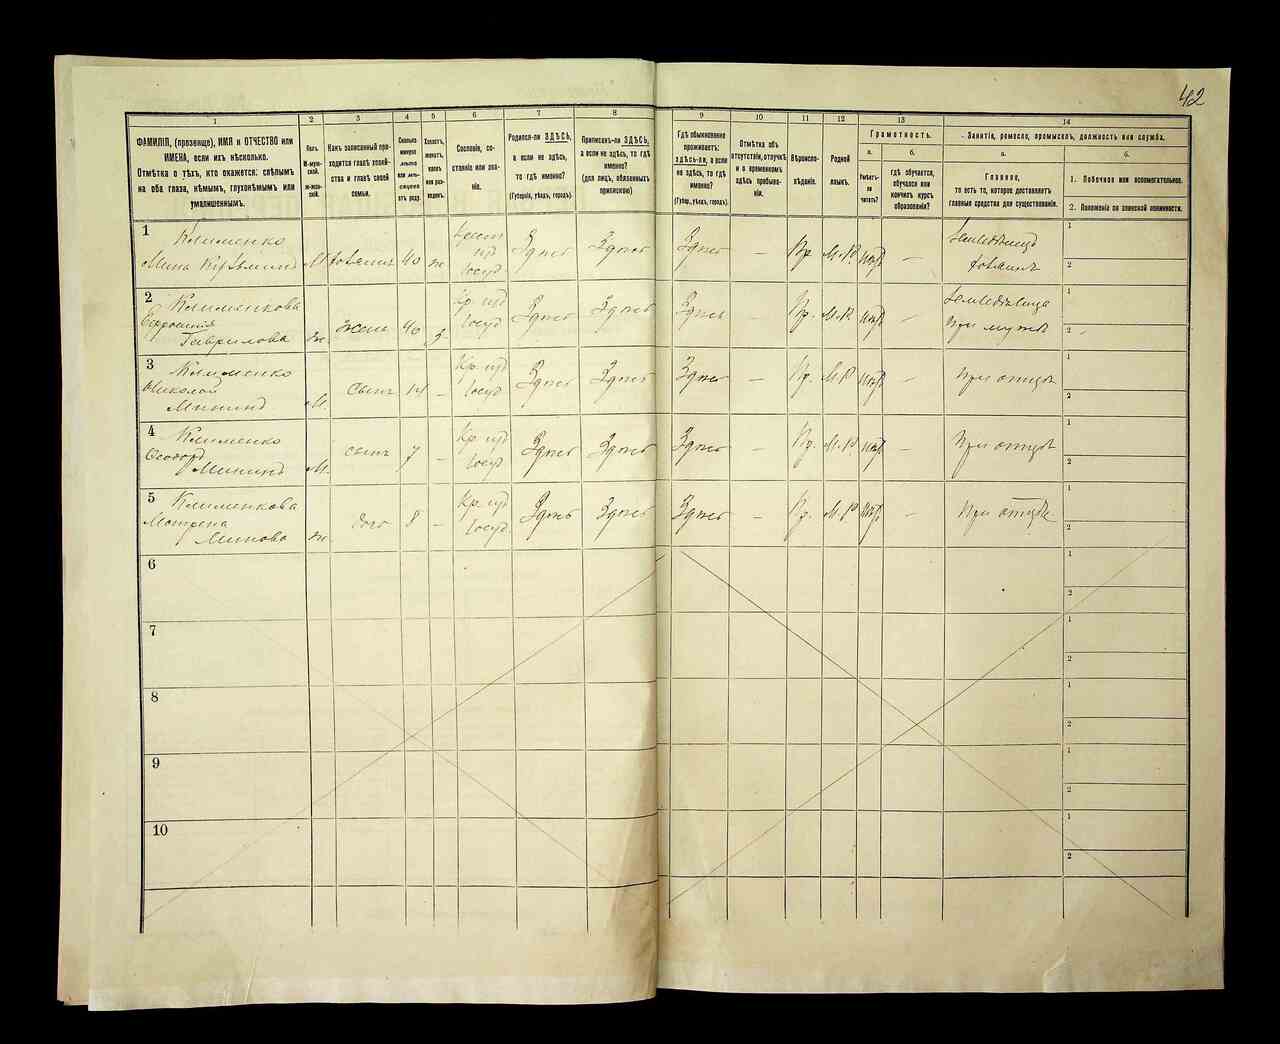 42
1
2
3
4
5
6
7
8
9
10
11
12
13
14
ФАМИЛІЯ, (прозвище), ИМЯ и ОТЧЕСТВО или
ИМЕНА, если ихъ нѣсколько.
Отмѣтка о тѣхъ, кто окажется: слѣпымъ
на оба глаза, нѣмымъ, глухонѣмымъ или
умалишеннымъ.
Полъ.
М-муж-
ской.
Ж-жен-
скій.
Какъ записанный при-
ходится главѣ хозяй-
ства и главѣ своей
семьи.
Сколько
минуло
лѣтъ
или мѣ-
сяцевъ
отъ роду.
Холостъ,
женатъ,
вдовъ
или раз-
веденъ.
Сословіе, со-
стояніе или зва-
ніе.
Родился-ли ЗДѢСЬ,
а если не здѣсь,
то гдѣ именно?
(Губернія, уѣздъ, городъ).
Приписанъ-ли ЗДѢСЬ,
а если не здѣсь, то гдѣ
именно?
(для лицъ, обязанныхъ
припискою)
Гдѣ обыкновенно
проживаетъ:
здѣсь-ли, а если
не здѣсь, то гдѣ
именно?
(Губер., уѣздъ, городъ).
Отмѣтка объ
отсутствіи, отлучкѣ
и о временномъ
здѣсь пребыва-
ніи.
Вѣроиспо-
вѣданіе.
Родной
языкъ.
Грамотность.
а.
б.
Умѣетъ-
ли
читать?
гдѣ обучается,
обучался или
кончилъ курсъ
образованія?
Занятіе, ремесло, промыселъ, должность или служба.
а.
б.
Главное,
то есть то, которое доставляетъ
главныя средства для существованія.
1. Побочное или вспомогательное.
2. Положеніе по воинской повинности.
1
Клименко
Мина
М
40
ж
Здѣсь
Здѣсь
Здѣсь
—
Пр
М.Р.
—
1
2
2
Клименкова
Ефросинія
Гаврилова
ж.
жена
40
Кр.
Госуд
Здѣсь
Здѣсь
Здѣсь
—
Пр.
М.Р.
—
при мужѣ
1
2
3
Клименко
Николай
Мининъ
М.
сынъ
14
—
Кр.
Госуд
Здѣсь
Здѣсь
Здѣсь
—
Пр.
М.Р.
—
При отцѣ
1
2
4
Клименко
Ѳеодоръ
Мининъ
М.
сынъ
7
—
Кр.
Госуд
Здѣсь
Здѣсь
Здѣсь
—
Пр.
М.Р.
—
При отцѣ
1
2
5
Клименкова
Мотрена
Минова
ж.
8
—
Кр.
Госуд.
Здѣсь
Здѣсь
Здѣсь
—
Пр.
М.Р.
—
При отцѣ
1
2
6
1
2
7
1
2
8
1
2
9
1
2
10
1
2